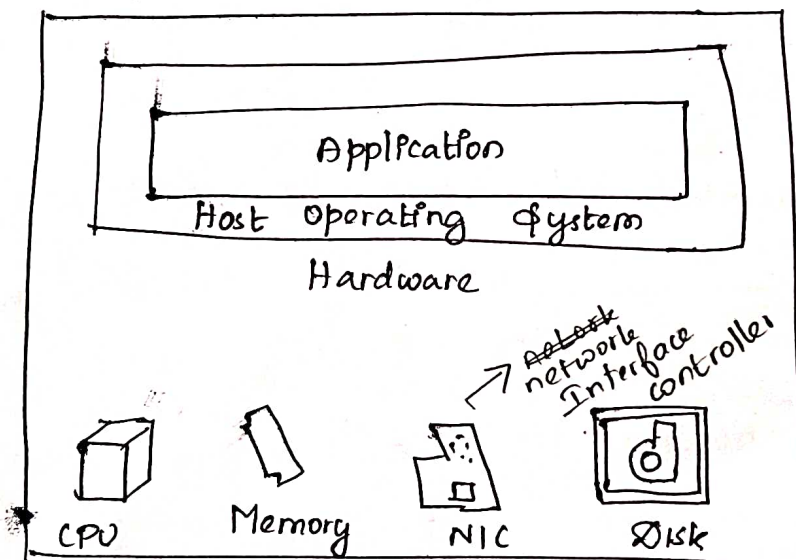 Application
Host Operating System
Hardware
network
Interface
controller
CPU
Memory
NIC
Disk